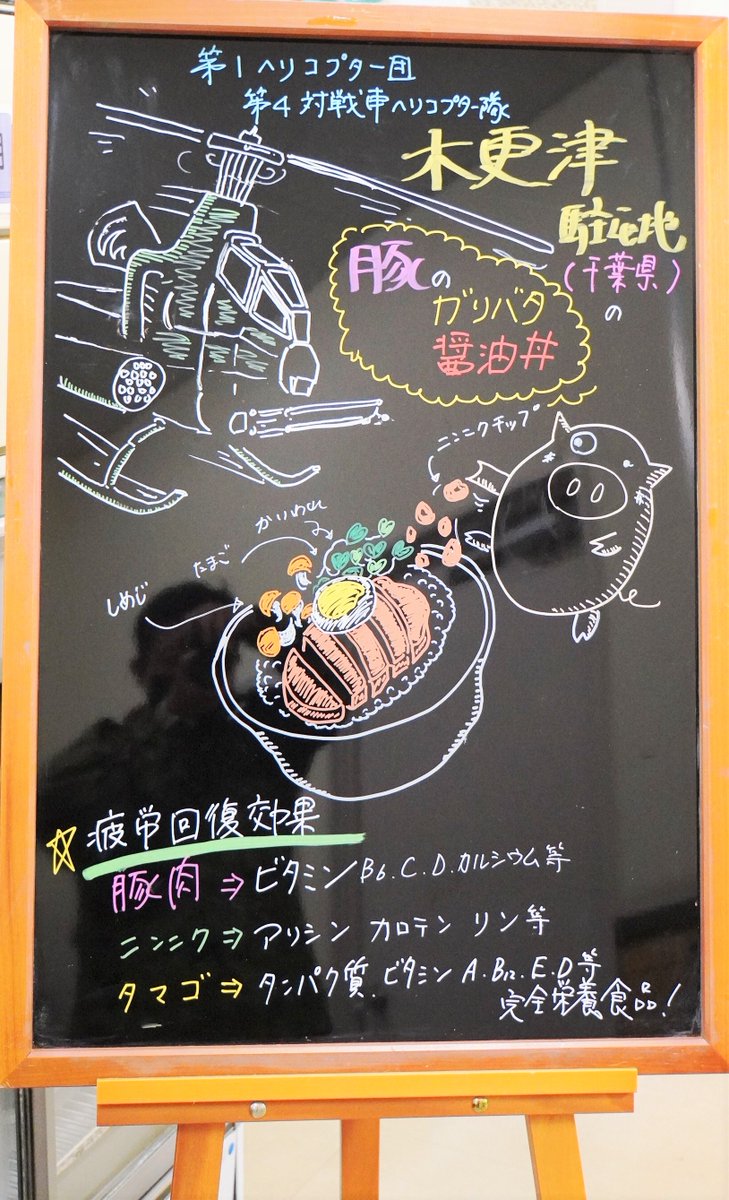 第1ヘリコプター団
第4対戦車ヘリコプター隊
木更津
駐屯地
(千葉県)
の
豚の
ガリバタ
醤油丼
ニンニクチップ
かいわれ
たまご
しめじ
疲労回復効果
豚肉⇒ビタミンB6.C.D.カルシウム等
ニンニク⇒アリシン カロテン リン等
タマゴ⇒タンパク質.ビタミン A.B12.E.D等
完全栄養食品!